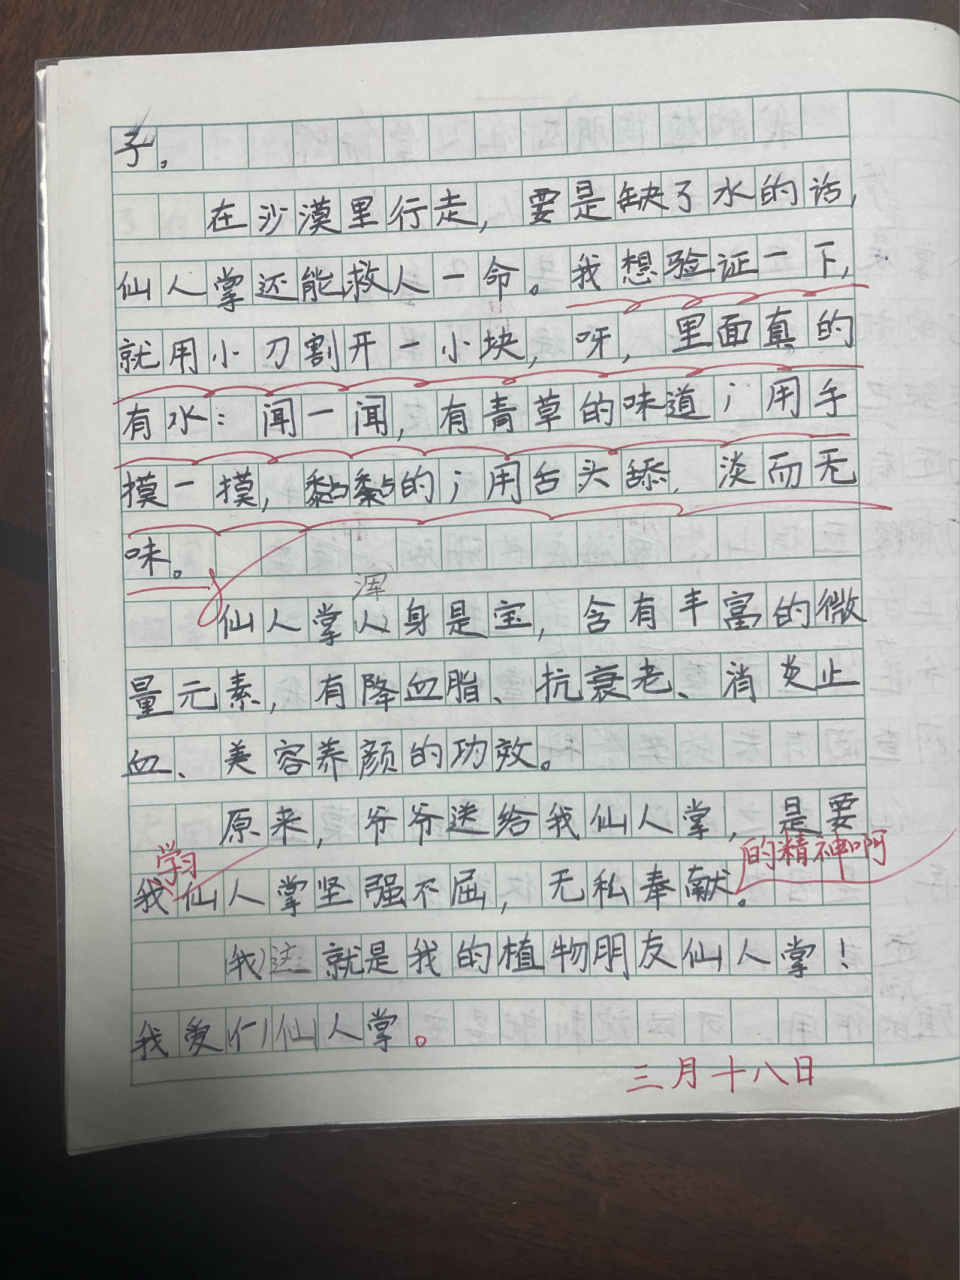 子。
在沙漠里行走，要是缺了水的话，
仙人掌还能救人一命。我想验证一下，
就用小刀割开一小块，呀，里面真的
有水：闻一闻，有青草的味道；用手
摸一摸，黏黏的；用舌头舔，淡而无
味。
浑
仙人掌人身是宝，含有丰富的微
量元素，有降血脂、抗衰老、消炎止
血、美容养颜的功效。
原来，爷爷送给我仙人掌，是要
学习
的精神啊
我仙人掌坚强不屈，无私奉献。
我这就是我的植物朋友仙人掌！
我爱们仙人掌。
三月十八日